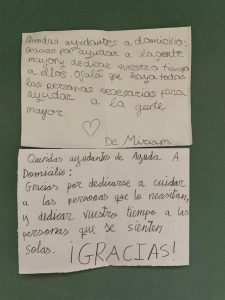 Queridas ayudantes a domicilio:
Gracias por ayudaar a la gente
mayor y dedicar vuestro tiempo
a ellos ojalá que haya todas
las personas necesarias para
ayudar a la gente
mayor.
De Miriam
Queridas ayudantes de Ayuda A
Domicilio:
Gracias por dedicarse a cuidar
a las personas que lo necesitan,
y dedicar vuestro tiempo a las
personas que se sienten
solas. ¡GRACIAS!